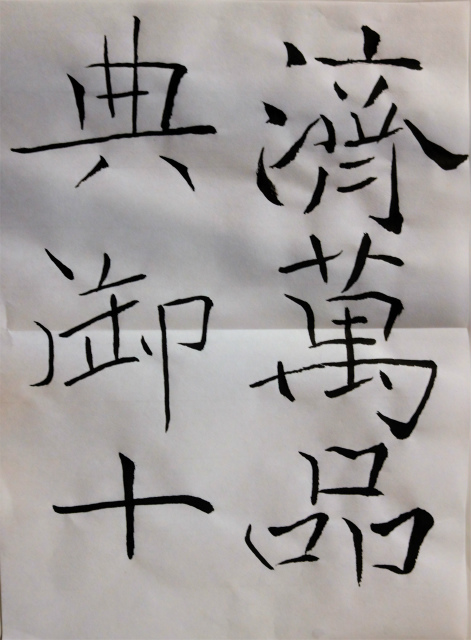 濟萬品
典御十